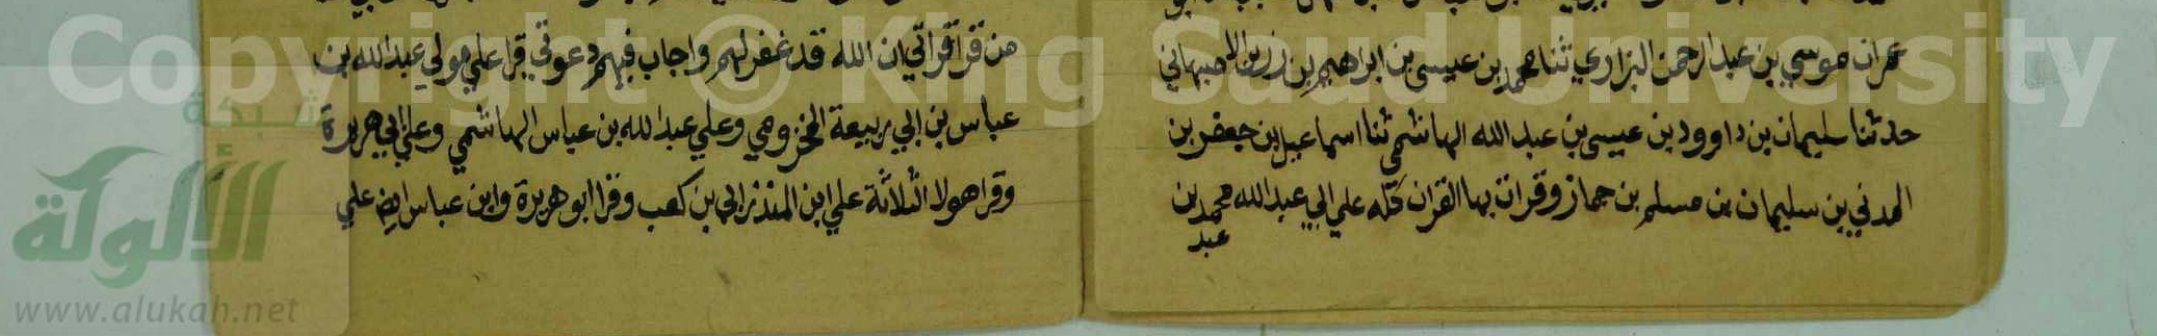 عمران موسي بن عبد الرحمن البزاري ثنا محمد بن عيسى بن ابراهيم بن رزين الاصبهاني
حدثنا سليمان بن داوود بن عيسى بن عبد الله الهاشمي ثنا اسماعيل بن جعفر بن
المدني بن سليمان بن مسلم بن جماز وقرات بها القران كله علي ابي عبد الله محمد بن
عبد
من قرا قراتي ان الله قد غفر لهم واجاب فيهم دعوتي قرا علي مولي عبد الله بن
عباس بن ابي ربيعة المخزومي وعلي عبد الله بن عباس الهاشمي وعلي ابي هريرة
وقرا هولا الثلاثة علي ابن المنذر ابي بن كعب وقرا ابو هريرة وابن عباس ايض علي
Copyright © King Saud University
شبكة
الألوكة
www.alukah.net